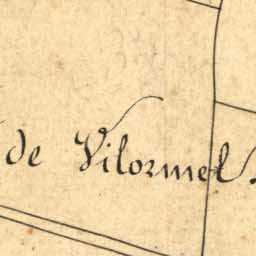 de Vilormel.